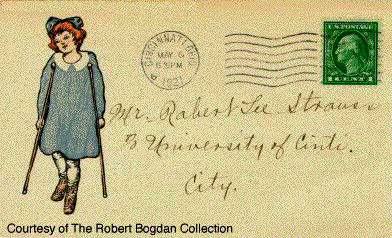 CINCINNATI, OHIO
MAY 6
6 PM
1921
U.S. POSTAGE
1 CENT 1
Mr. Robert Lee Strauss
% University of Cinti.
City.
Courtesy of The Robert Bogdan Collection